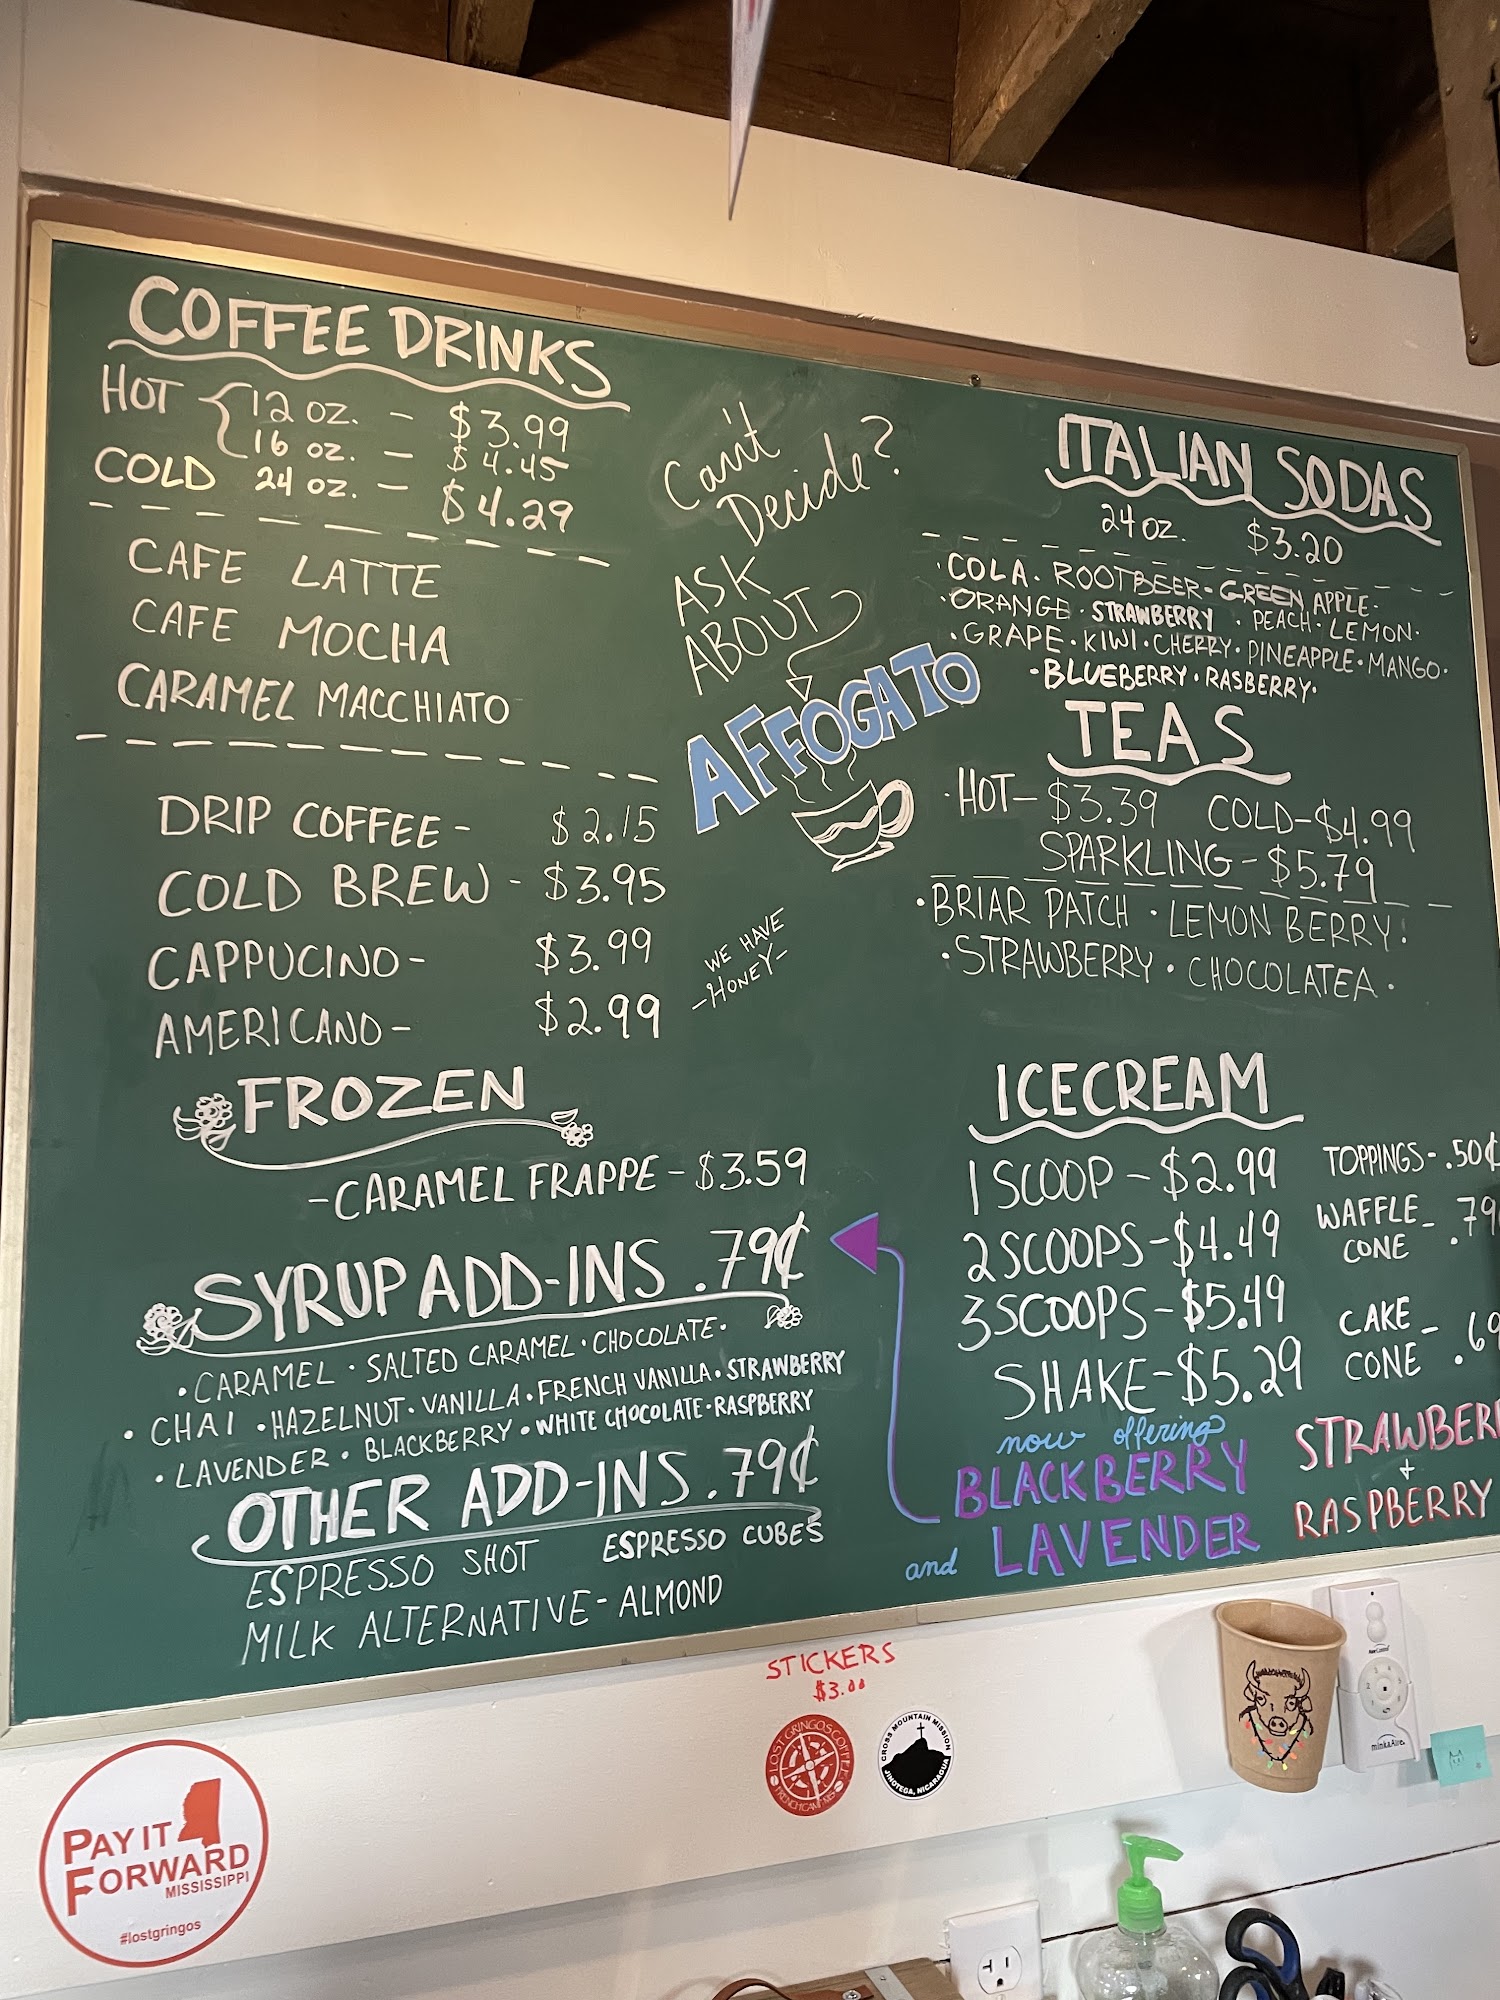 COFFEE DRINKS
HOT { 12 OZ. - $3.99
16 OZ. - $4.45
COLD 24 OZ. - $4.29
CAFE LATTE
CAFE MOCHA
CARAMEL MACCHIATO
DRIP COFFEE - $2.15
COLD BREW - $3.95
CAPPUCINO - $3.99
AMERICANO - $2.99
FROZEN
-CARAMEL FRAPPE - $3.59
SYRUP ADD-INS .79¢
• CARAMEL • SALTED CARAMEL • CHOCOLATE •
• CHAI • HAZELNUT • VANILLA • FRENCH VANILLA • STRAWBERRY
• LAVENDER • BLACKBERRY • WHITE CHOCOLATE • RASPBERRY
OTHER ADD-INS .79¢
ESPRESSO SHOT ESPRESSO CUBES
MILK ALTERNATIVE - ALMOND
Can't
Decide?
ASK
ABOUT
AFFOGATO
WE HAVE
-HONEY-
ITALIAN SODAS
24 OZ. $3.20
• COLA • ROOTBEER • GREEN APPLE •
• ORANGE • STRAWBERRY • PEACH • LEMON •
• GRAPE • KIWI • CHERRY • PINEAPPLE • MANGO •
• BLUEBERRY • RASBERRY •
TEAS
• HOT - $3.39 COLD - $4.99
SPARKLING - $5.79
• BRIAR PATCH • LEMON BERRY!
• STRAWBERRY • CHOCOLATEA •
ICECREAM
1 SCOOP - $2.99
2 SCOOPS - $4.49
3 SCOOPS - $5.49
SHAKE - $5.29
TOPPINGS - .50¢
WAFFLE
CONE - .79¢
CAKE
CONE - .69
now offering
BLACKBERRY
and LAVENDER
STRAWBER
+
RASPBERRY
STICKERS
$3.00
LOST GRINGOS COFFEE
FRENCH CAMP, MS
CROSS MOUNTAIN MISSION
JINOTEGA, NICARAGUA
PAY IT
FORWARD
MISSISSIPPI
#lostgringos
minkaAire